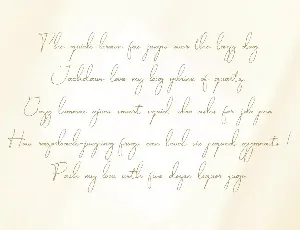 The quick brown fox jumps over the lazy dog
Jackdaws love my big sphinx of quartz
Jazzy lemurs from mount squid
How razorback-jumping frogs can level six piqued gymnasts !
Pack my box with five dozen liquor jugs